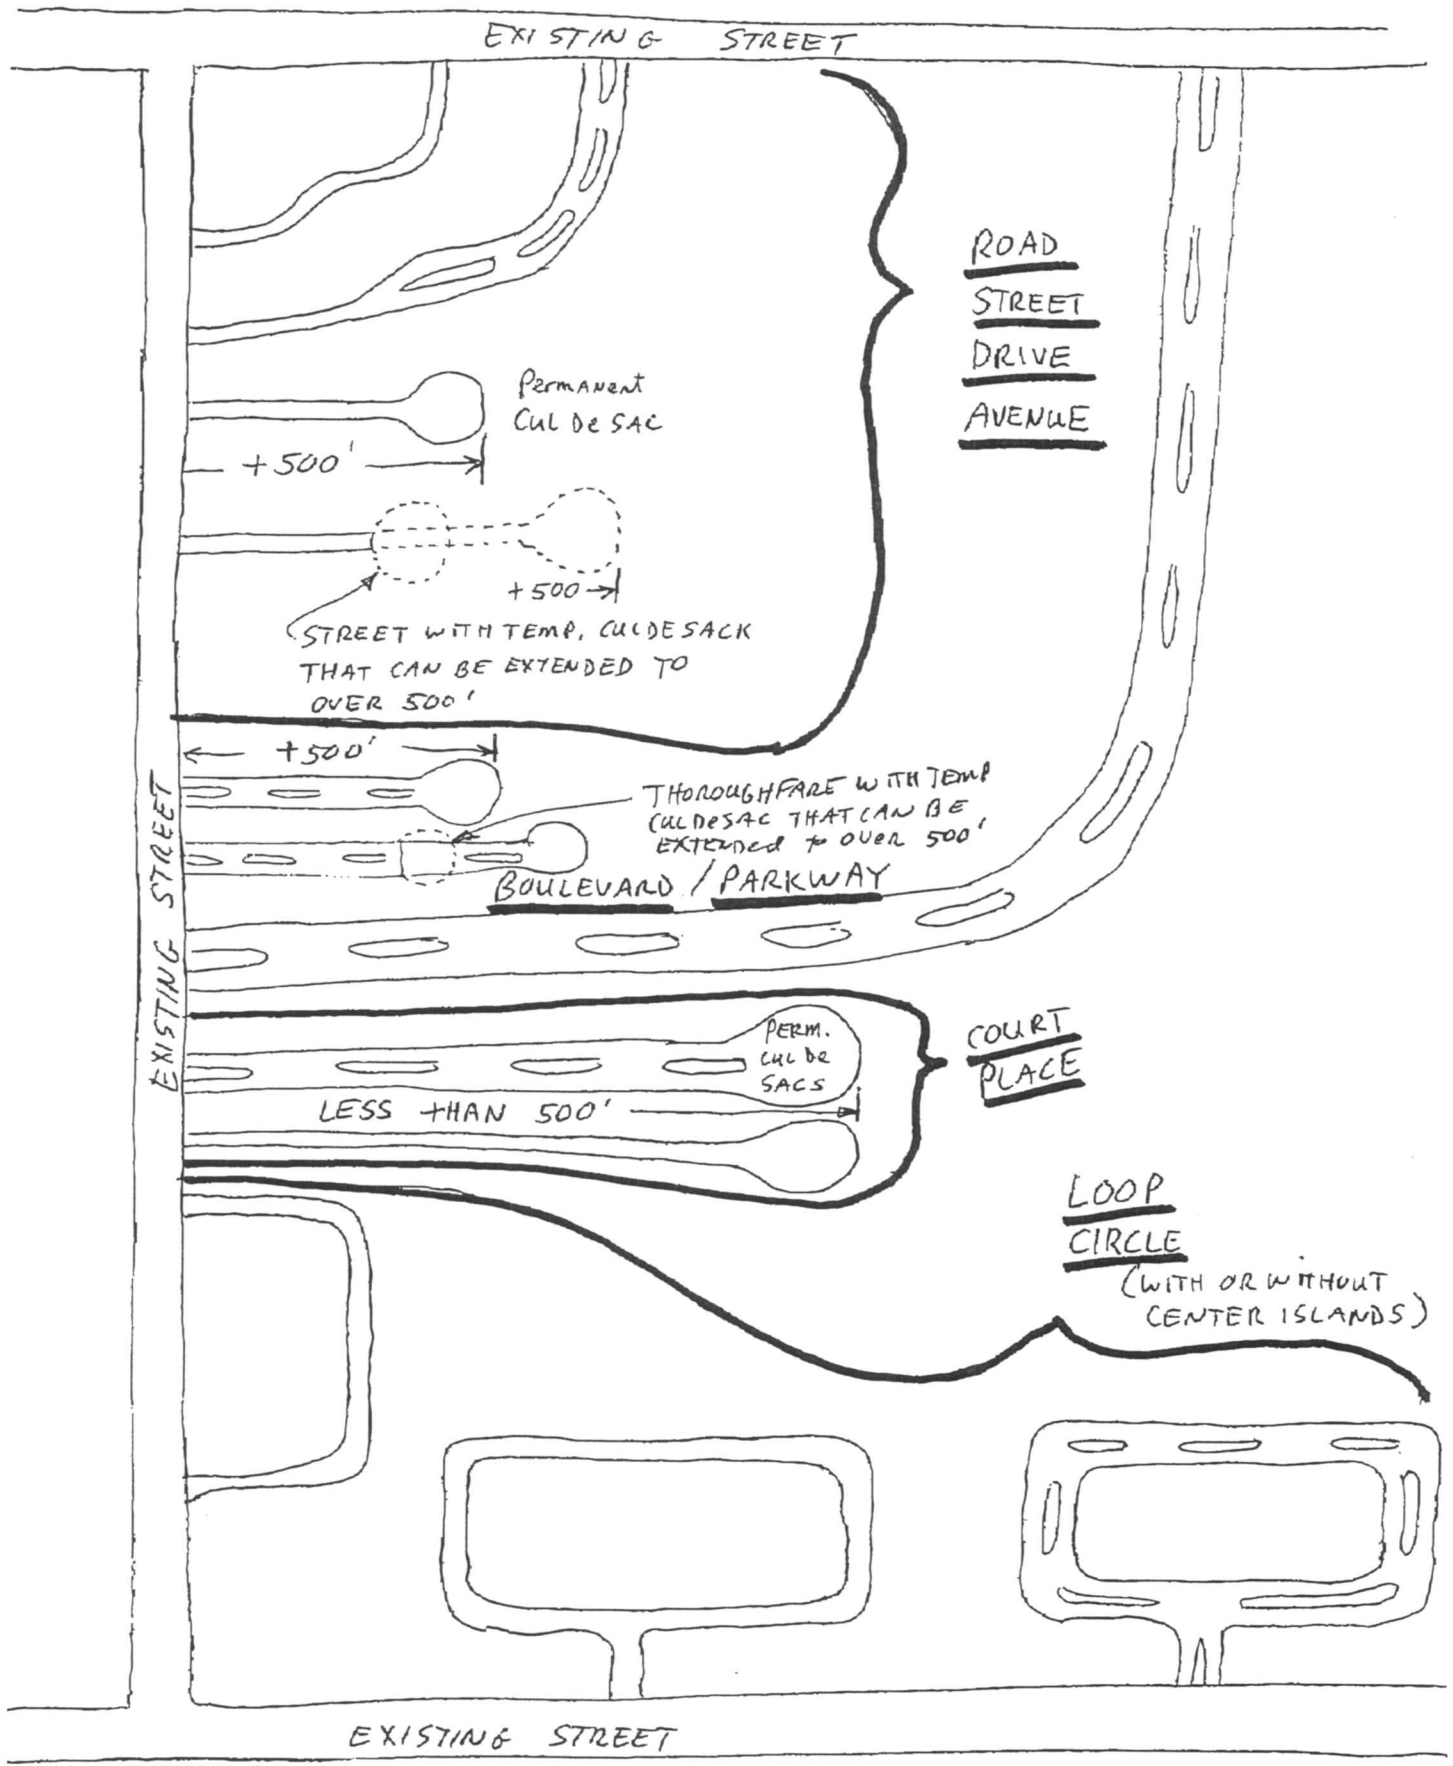 EXISTING STREET
ROAD
STREET
DRIVE
AVENUE
PERMANENT
CUL DE SAC
+500'
+500
STREET WITH TEMP. CULDESACK
THAT CAN BE EXTENDED TO
OVER 500'
+500'
THOROUGHFARE WITH TEMP
CULDESAC THAT CAN BE
EXTENDED TO OVER 500'
BOULEVARD / PARKWAY
EXISTING STREET
PERM.
CUL DE
SACS
COURT
PLACE
LESS THAN 500'
LOOP
CIRCLE
(WITH OR WITHOUT
CENTER ISLANDS)
EXISTING STREET